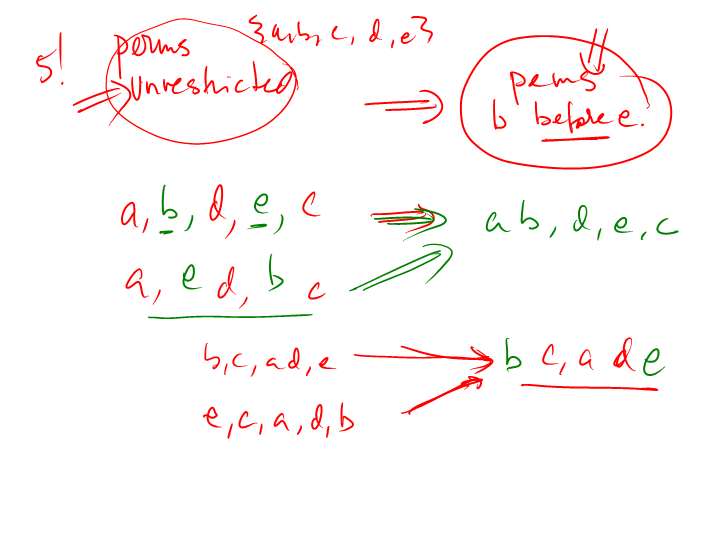 5! perms {a,b, c, d, e}
unrestricted ⇒ perms
b before e.
a, b, d, e, c ⇒ a b, d, e, c
a, e d, b c
b, c, a d, e → b c, a d e
e, c, a, d, b